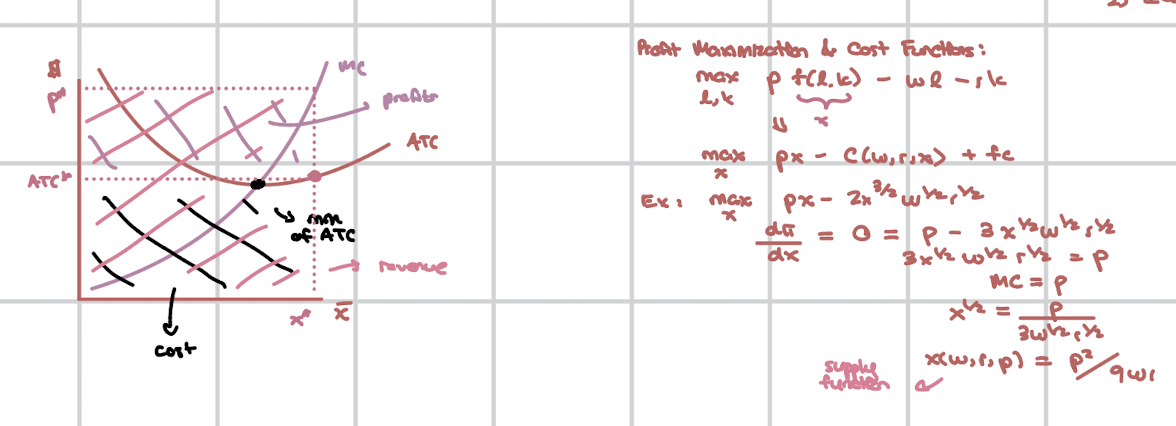 $
p*
MC
profits
ATC
ATC*
min
of ATC
revenue
x*
x̄
cost
Profit Maximization & Cost Functions:
max p f(l,k) - wl - rk
l,k
x
⇓
max px - C(w,r,x) + fc
x
Ex: max px - 2x^{3/2} w^{1/2} r^{1/2}
x
dπ/dx = 0 = p - 3x^{1/2} w^{1/2} r^{1/2}
3x^{1/2} w^{1/2} r^{1/2} = p
MC = p
x^{1/2} = p / 3w^{1/2} r^{1/2}
x(w,r,p) = p²/9wr
supply
function